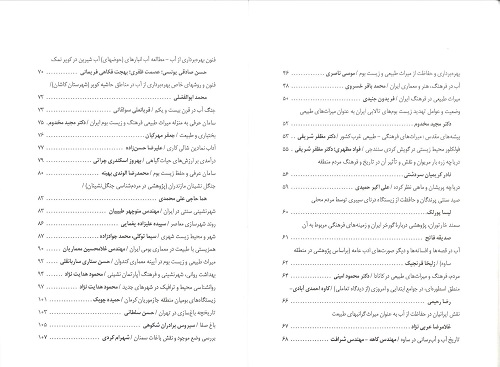 بهره‌برداری و حفاظت از میراث طبیعی و زیست بوم / موسی ناصری ۴۶
آب در فرهنگ، هنر و معماری ایران / محمد باقر خسروی ۴۸
میراث طبیعی در فرهنگ ایران / فریدون جنیدی ۵۰
وضعیت و عوامل تهدید زیست بوم‌های تالابی ایران به عنوان میراث‌های طبیعی
دکتر مجید مخدوم ۵۲
بیشه‌های مقدس، میراث‌های فرهنگی - طبیعی غرب کشور / دکتر مظفر شریفی ۵۳
فولکلور محیط زیستی در گویش کردی سنندجی / فواد مظهری، دکتر مظفر شریفی ۵۵
دریاچه زره بار مریوان و نقش و تأثیر آن در تاریخ و فرهنگ مردم منطقه
نادر کریمیان سردشتی ۵۶
دریاچه پریشان و ماهی نظر کرده / علی اکبر حمیدی ۵۹
صید سنتی پرندگان و حفاظت از زیستگاه درنای سیبری توسط مردم محلی
لیسا پورلک ۶۰
سمند خارتوران، پژوهشی درباره گورخر ایران و زمینه‌های فرهنگی مربوط به آن
صدیقه فاتح ۶۱
آب در قصه‌ها و افسانه‌ها و دیگر صورت‌های ادب عامه (براساس پژوهشی در منطقه
ساوه) / زلیخا قرنجیک ۶۲
مردم، فرهنگ و میراث‌های طبیعی در کانادا / دکتر محمود امینی ۶۴
منطق اسطوره‌ای، در جوامع ابتدایی و امروزی (از دیدگاه تعاملی) / کاوه احمدی آبادی-
رضا رحیمی ۶۶
نقش ایرانیان در حفاظت از آب به عنوان میراث گرانبهای طبیعت
غلامرضا عربی نژاد ۶۷
تاریخ آب و آب‌رسانی در ساوه / مهندس کاهه - مهندس شرافت ۶۸
فنون بهره‌برداری از آب - مطالعه آب انبارهای (حوضهای) آب شیرین در کویر نمک
حسن صادقی یونسی؛ عصمت غفری؛ بهجت فکاهی فریمانی ۷۰
فنون و روشهای خاص بهره‌برداری از آب در مناطق حاشیه کویر (شهرستان کاشان)/
محمد ابوالفضلی ۷۲
جنگ آب در قرن بیست و یکم / قربانعلی سوقانی ۷۳
سامان عرفی به منزله میراث طبیعی فرهنگ و زیست بوم ایران / دکتر مجید مخدوم ۷۵
بختیاری و طبیعت / جعفر مهرکیان ۷۶
آداب نمادین شالی کاری / علیرضا حسن‌زاده ۷۷
درآمدی بر ارزش‌های حیات گیاهی / بهروز اسکندری چراتی ۷۹
سامان عرفی و حفظ زیست بوم / محمدرضا الوندی بهینه ۸۰
جنگل نشینان مازندران (پژوهشی در مردم‌شناسی جنگل نشینان) /
هما حاجی علی محمدی ۸۲
شهرنشینی سنتی در ایران / مهندس منوچهر طبیبیان ۸۳
روند شهرسازی معاصر / سپیده علیزاده یغمایی ۸۶
شهر و محیط زیست شهری / سیما توکلی، محمد جوادزاده ۸۷
همزیستی با طبیعت در معماری بومی ایران / مهندس غلامحسین معماریان ۹۰
میراث طبیعی و زیست بوم در آیینه معماری کندوان / حسن ستاری ساربانقلی ۹۷
بهداشت روانی، شهرنشینی و فرهنگ آپارتمان نشینی / محمود هدایت نژاد ۹۹
روانشناسی محیط و ترافیک در شهرهای جدید / محمود هدایت نژاد ۱۰۰
زیستگاه‌های بومیان منطقه جازموریان کرمان / حمیده چوبک ۱۰۱
تاریخچه باغ‌سازی در تهران / حسن سلطانی ۱۰۳
باغ صفا / سیروس برادران شکوهی ۱۰۵
بررسی وضع موجود و نقش باغات سمنان / شهرام کردی ۱۰۷